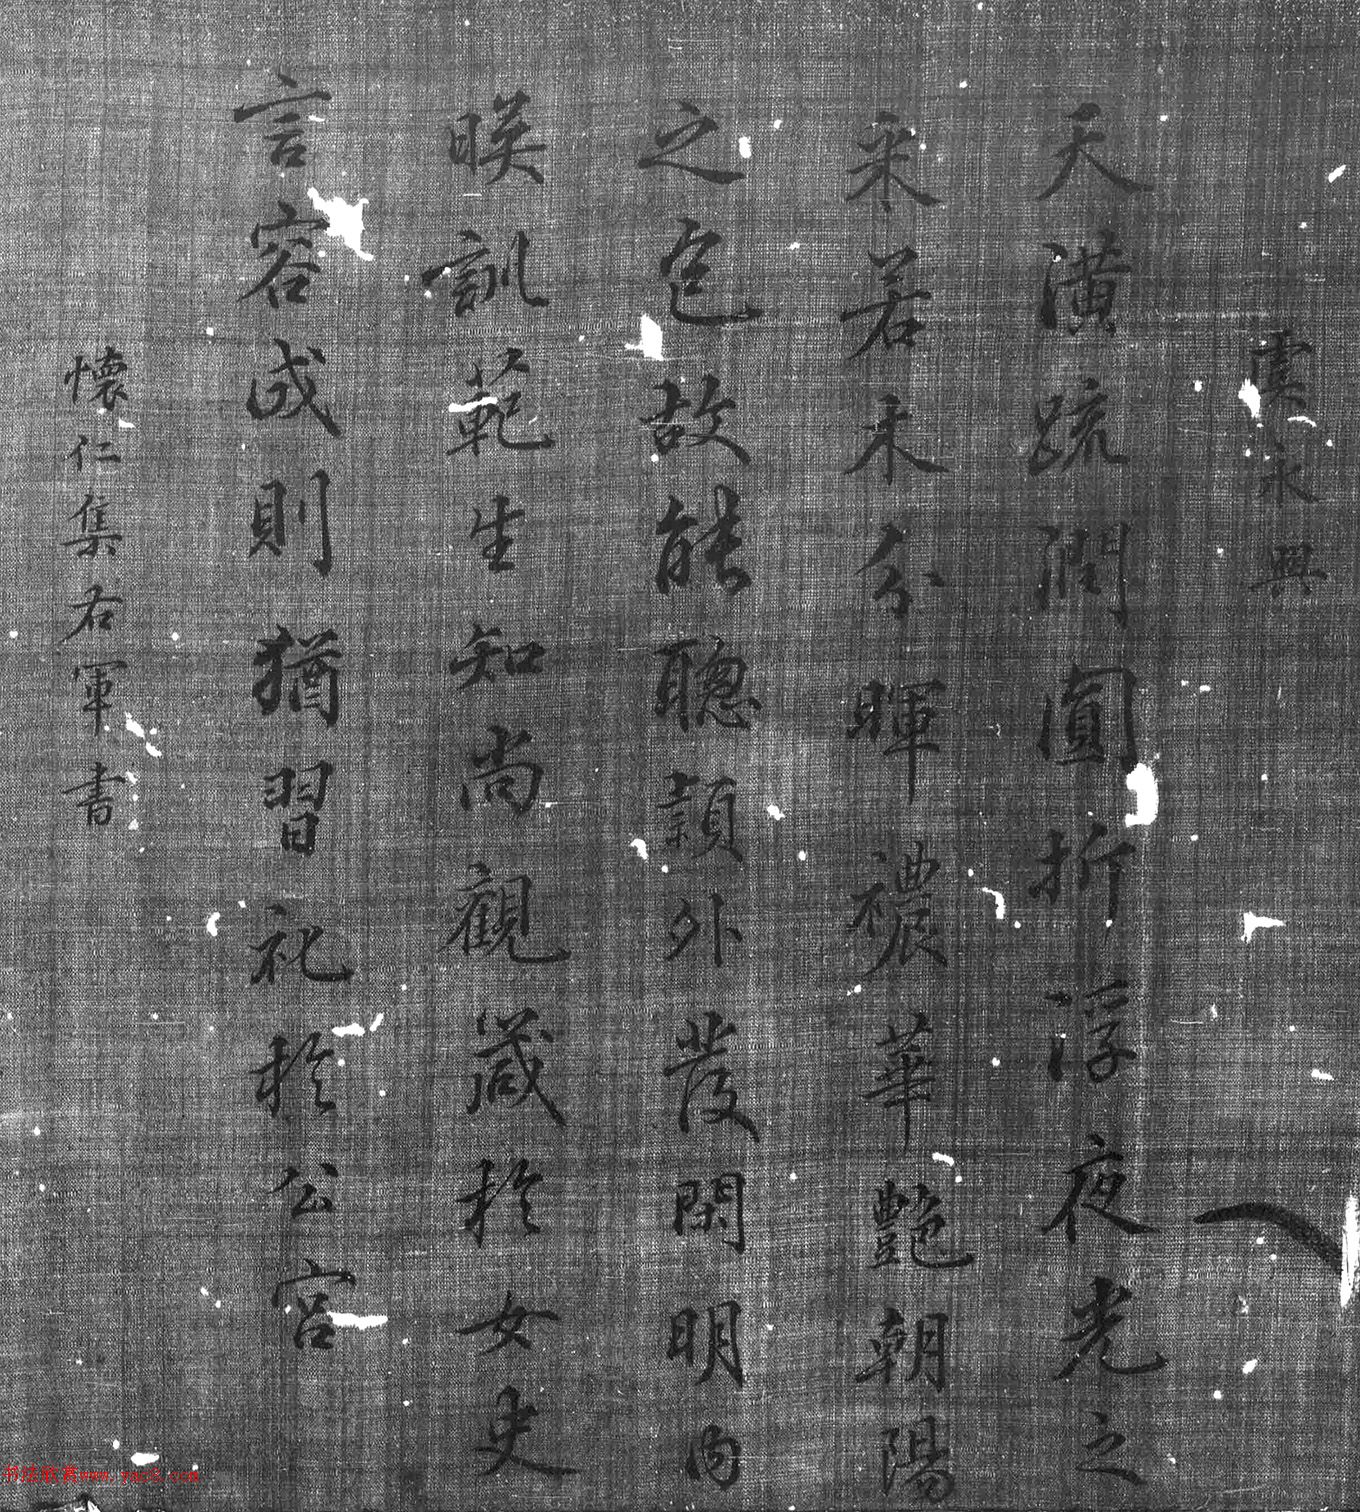 虞永興
天潢疏潤圓折浮夜光之
采若木分暉襛華艷朝陽
之色故能聰穎外發閑明内
暎訓範生知尚觀箴於女史
言容成則猶習礼於公宮
懷仁集右軍書
书法欣赏www.yac8.com